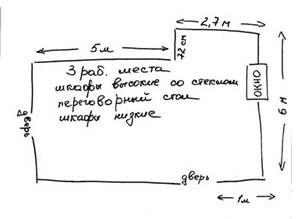 2,7 м
5 м
72 см
3 раб. места
шкафы высокие со стеклом
переговорный стол
шкафы низкие
окно
6 м
дверь
дверь
1 м